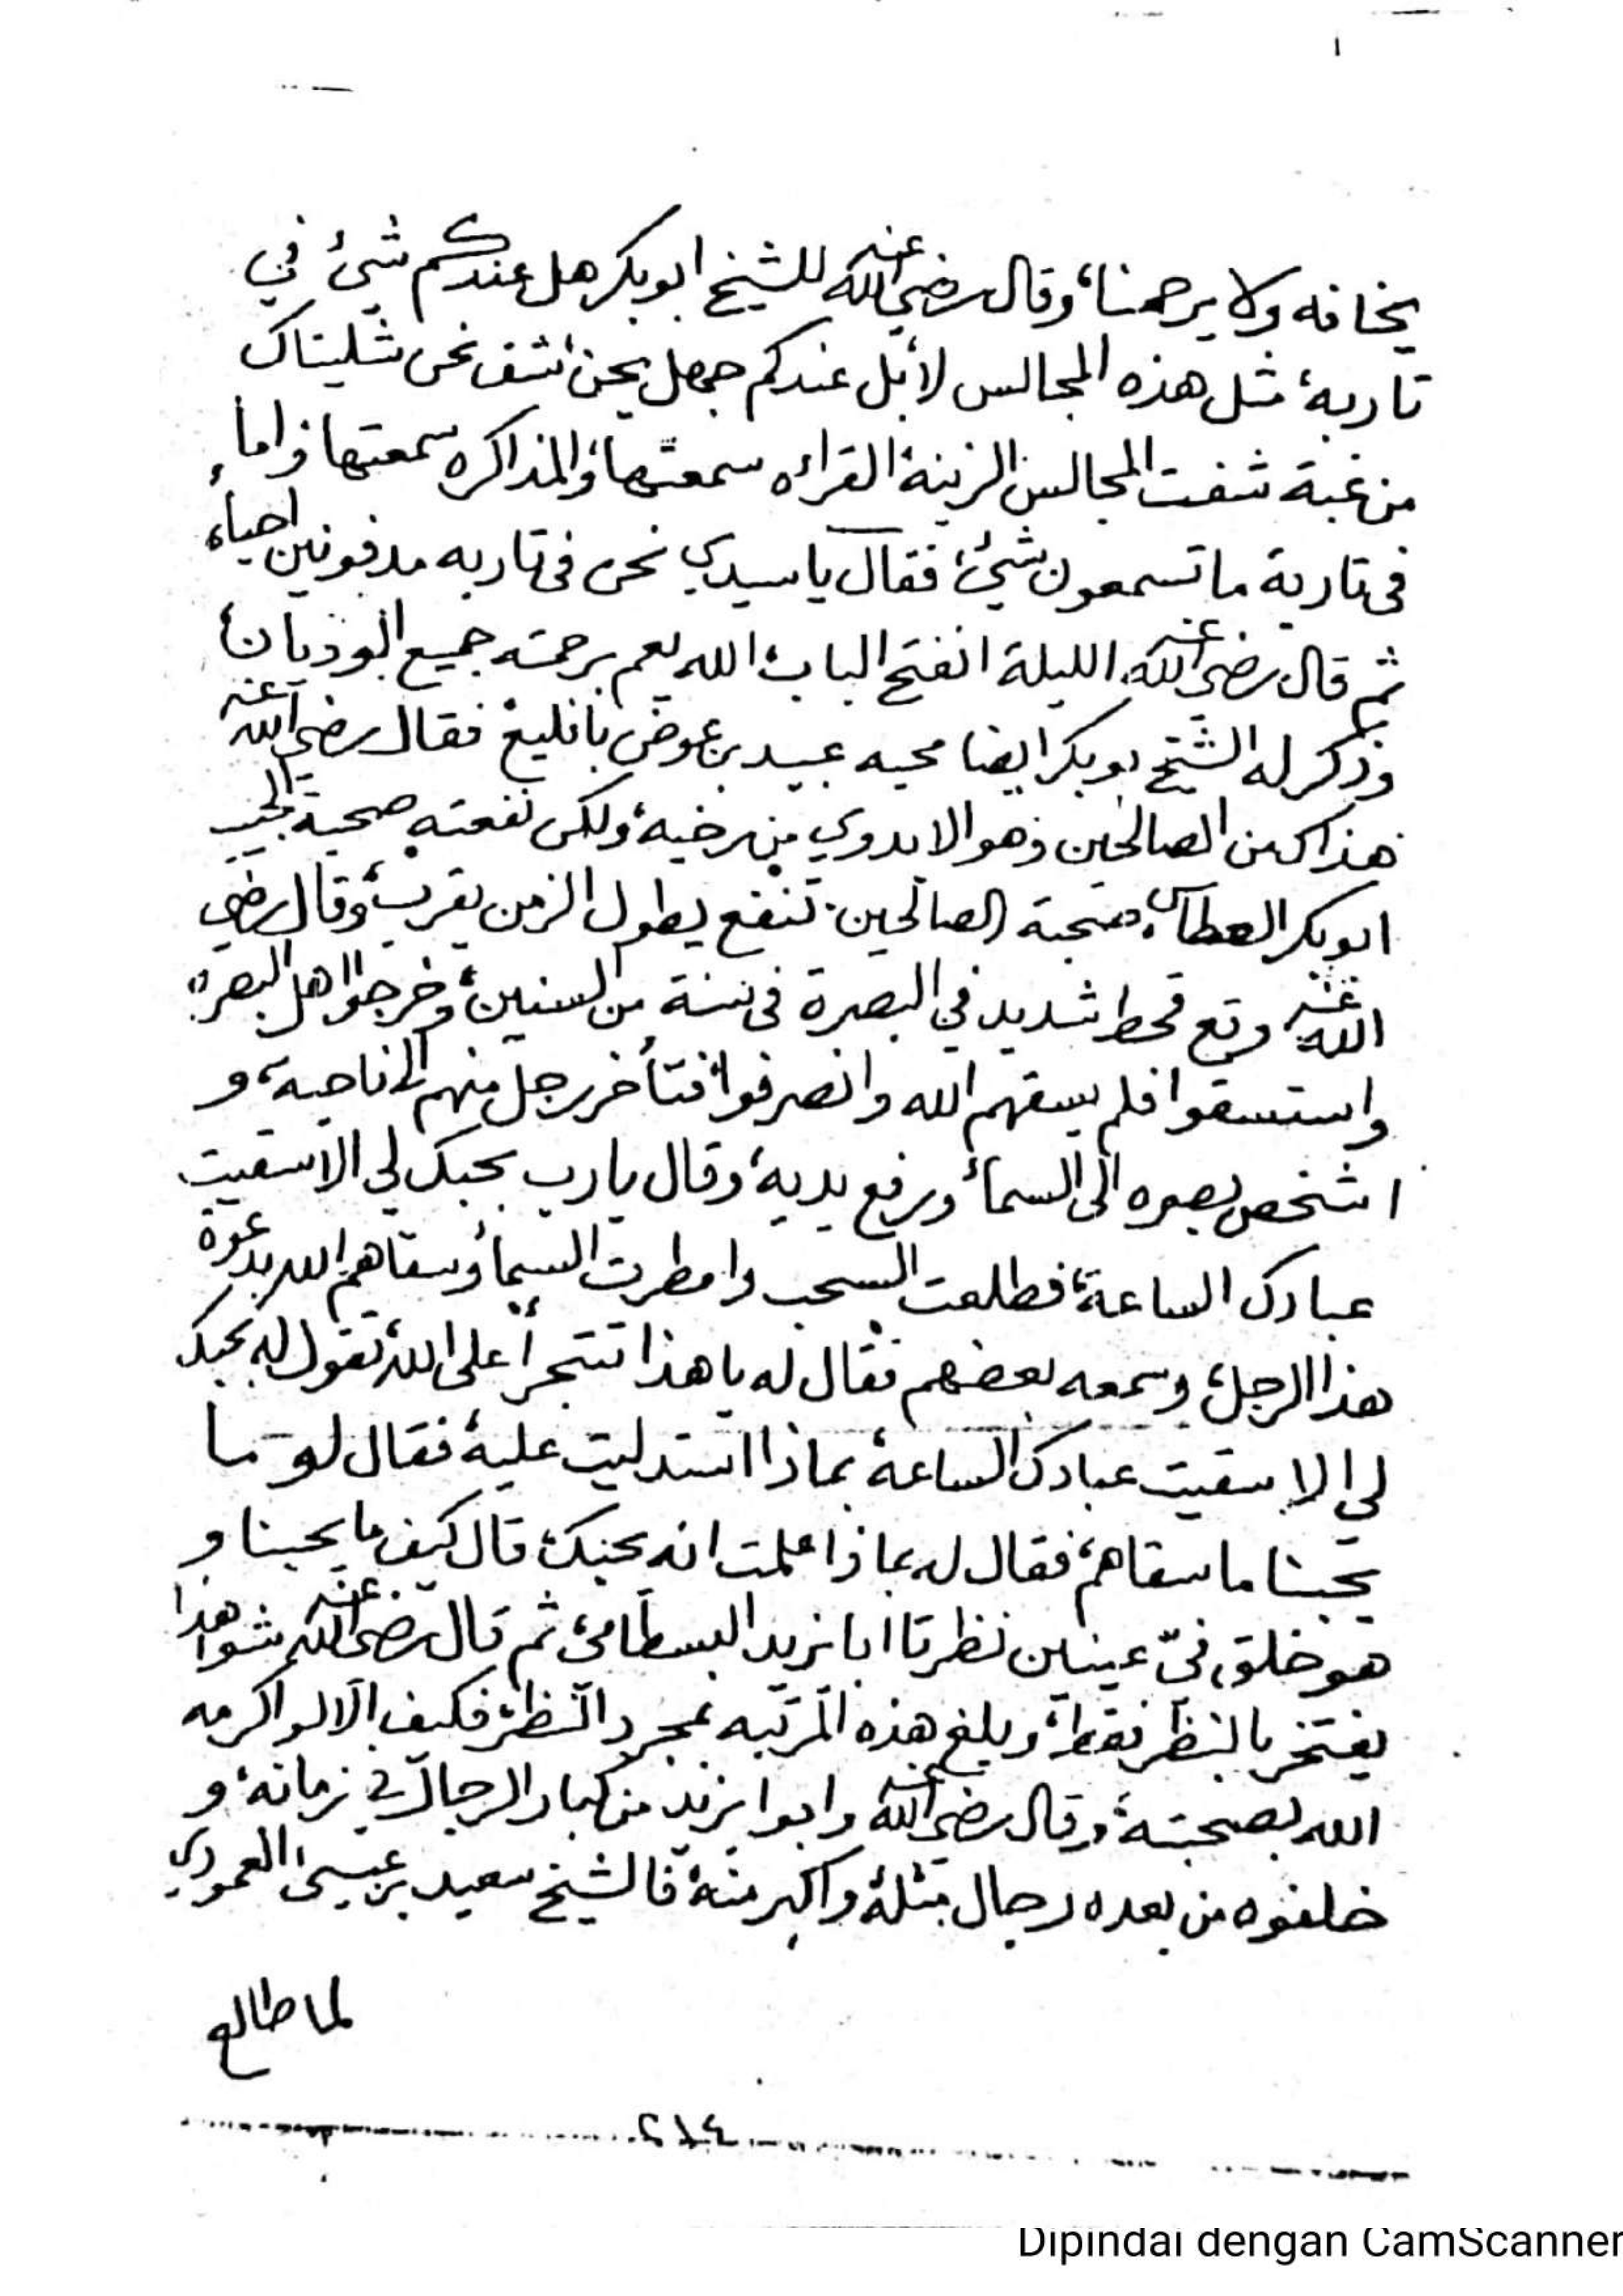 يخافه ولا يرحمنا، وقال رضي الله عنه للشيخ ابوبكر هل عندكم شيئ في
تاربه، مثل هذه المجالس لا، بل عندكم جهل نحن، شف نحن شليناك
من غبة شفت المجالس الزينة، القراءه سمعتها، والمذاكره سمعتها، واما
في تاربة ما تسمعون شيئ، فقال يا سيدي نحن في تاربه مدفونين احياء،
ثم قال رضي الله عنه الليلة انفتح الباب، الله يعم برحمته جميع الوديان،
وذكر له الشيخ بوبكر ايضا محبه عبيد بن عوض بافليع، فقال رضي الله عنه
هذاك من الصالحين وهو الا بدوي من رخيه، ولكن نفعته صحبة الحبيب
ابوبكر العطاس، صحبة الصالحين تنفع يطول الزمن يقرب، وقال رضي
الله عنه وقع قحط شديد في البصرة في سنة من السنين، وخرجوا اهل البصره
واستسقوا فلم يسقهم الله وانصرفوا، فتأخر رجل منهم الى ناحية، و
اشخص بصره الى السماء ورفع يديه، وقال يا رب بحبك لي الا سقيت
عبادك الساعة، فطلعت السحب وامطرت السماء وسقاهم الله بدعوة
هذا الرجل، وسمعه بعضهم فقال له يا هذا تتجرأ على الله، تقول له بحبك
لي الا سقيت عبادك الساعة، بماذا استدليت عليه، فقال لو ما
يحبنا ما سقاهم، فقال له بماذا علمت انه يحبك، قال كيف ما يحبنا و
هو خلق فيّ عينين نظرتا ابا يزيد البسطامي، ثم قال رضي الله عنه شوا هذا
يفتخر بالنظر فقط، وبلغ هذه المرتبه بمجرد النظر، فكيف الا لو اكرمه
الله بصحبته، وقال رضي الله عنه وابوا يزيد من كبار الرجال في زمانه، و
خلفوه من بعده رجال مثله، واكبر منه، فالشيخ سعيد بن عيسى العمودي
لما طالع
٢١٤
Dipindai dengan CamScanner